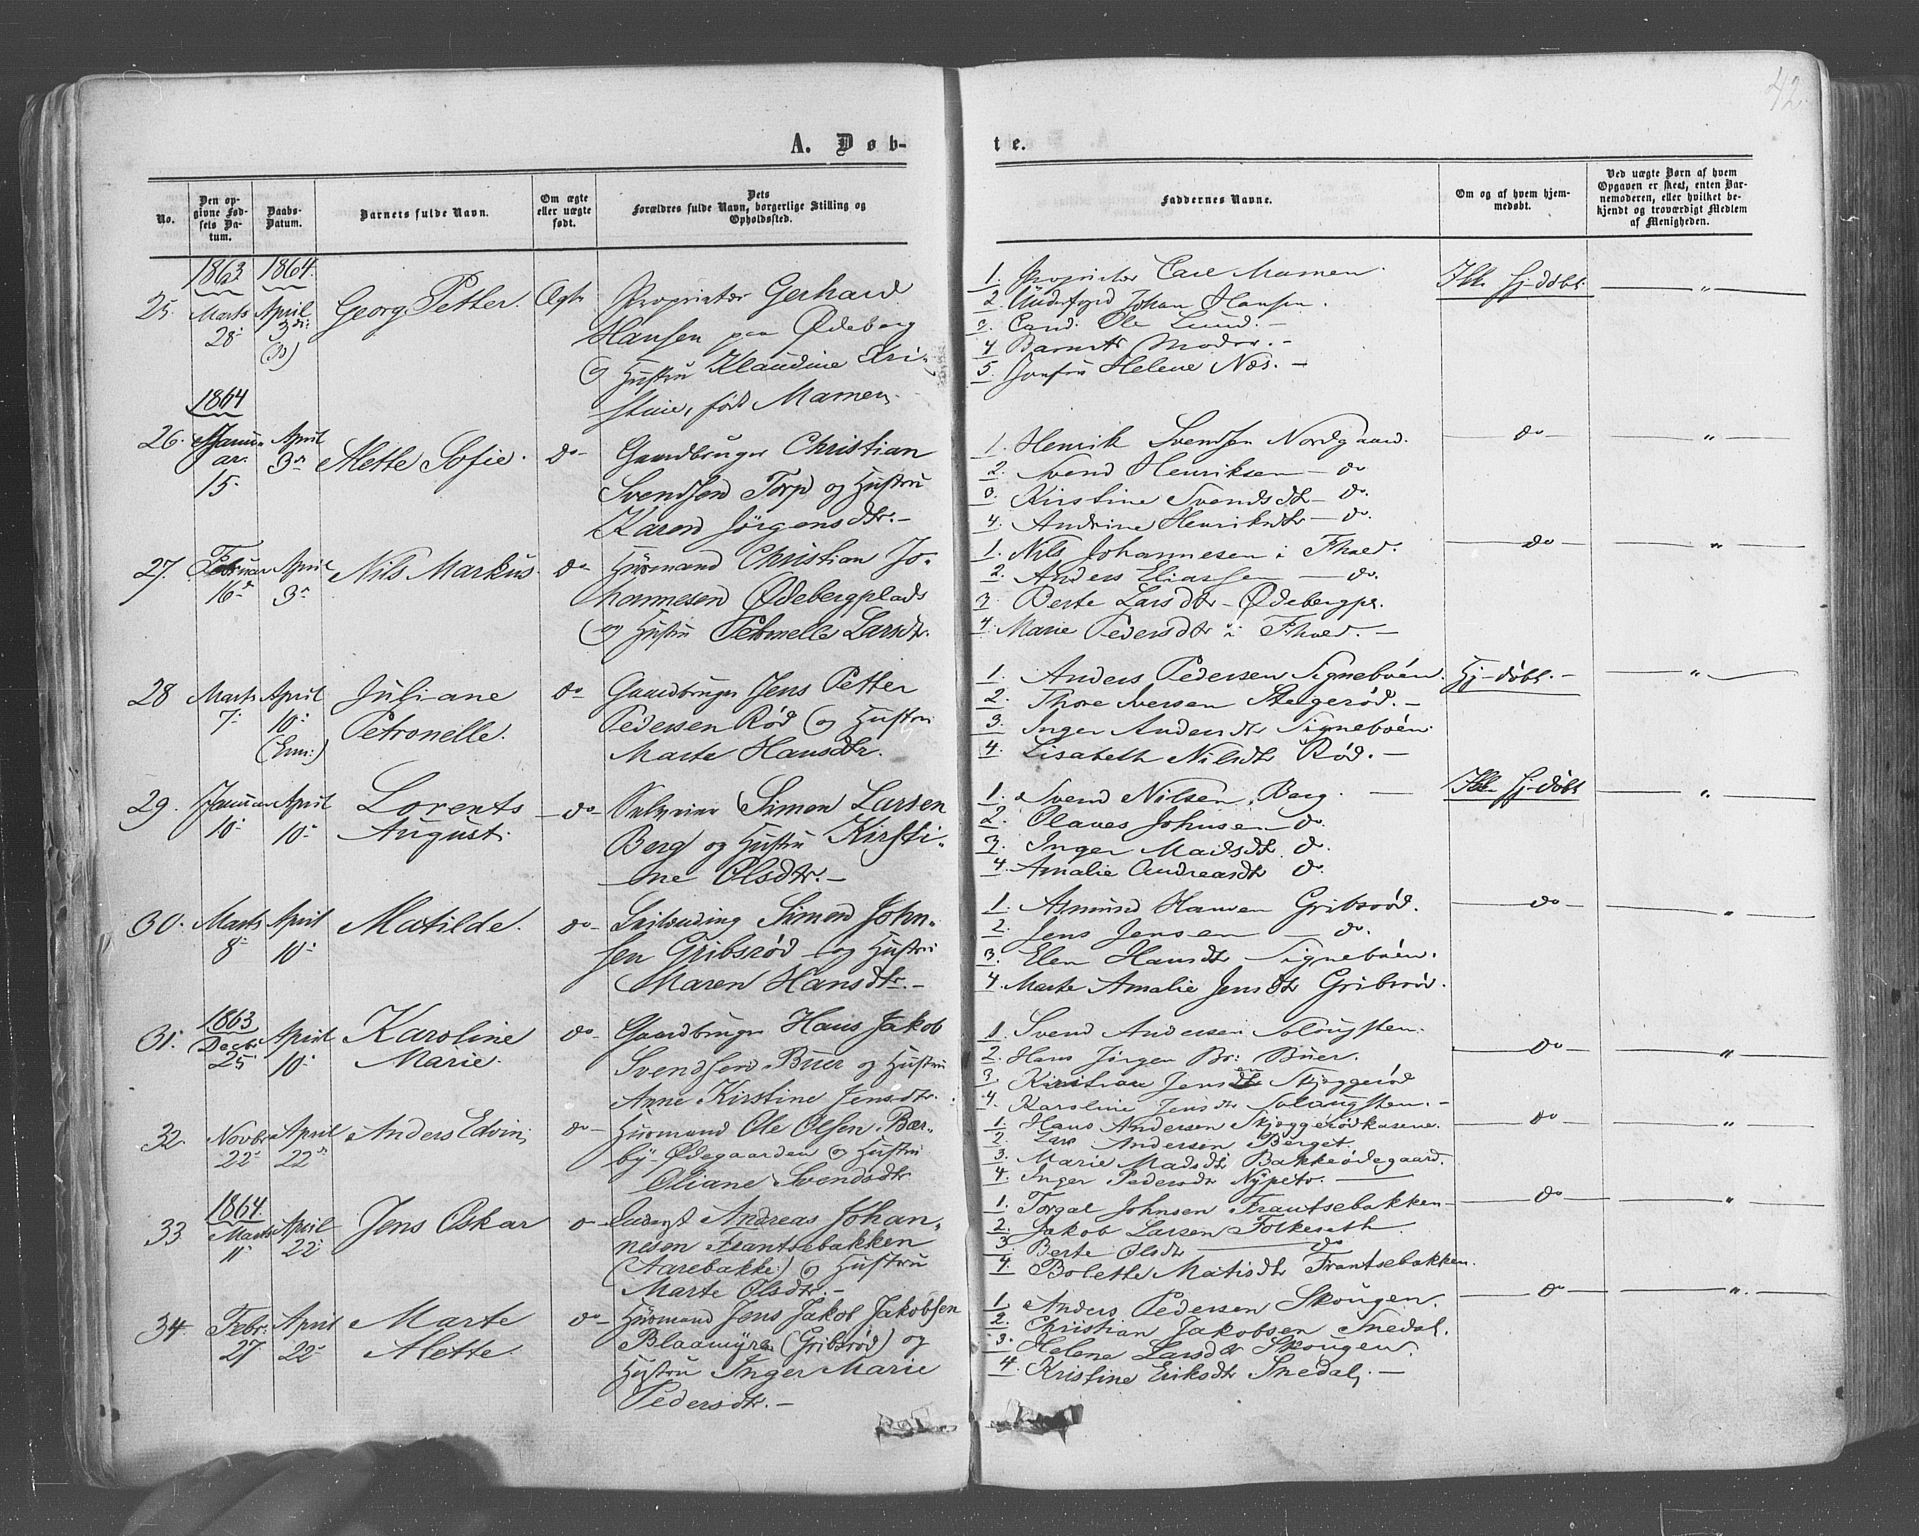 42.
A. Døb-
te.
No.
Den op-
givne Fød-
sels Da-
tum.
Daabs-
Datum.
Barnets fulde Navn.
Om ægte
eller uægte
født.
Dets
Forældres fulde Navn, borgerlige Stilling og
Opholdssted.
Faddernes Navne.
Om og af hvem hjem-
medøbt.
Ved uægte Børn af hvem
Opgaven er skeet, enten Bar-
nemoderen, eller hvilket be-
kjendt og troværdigt Medlem
af Menigheden.
1863 1864.
25. Marts 28 April 3die (P) Georg Petter. Ægte
Proprietær Gerhard
Hansen paa Ødeberg
og Hustru Klaudine Kri-
stine, født Mamen.
1. Proprietær Carl Mamen.
2. Johan Hansen.
3. Cand. Ole Lund. -
4. Barnets Moder. -
5. Jomfru Helene Næs. -
Ikke Hj-døbt. "
1864
26. Janu-
ar.
15. April 3die Alette Sofie. do-
Gaardbruger Christian
Svendsen Torp og Hustru
Karen Jørgensdtr. -
1. Henrik Svendsen Nordgaard.
2. Svend Henriksen - do
3. Kirstine Svendsdtr - do.
4. Andrine Henriksdtr - do.
do "
27. Februar 16de April 3die Nils Markus. do-
Husmand Christian Jo-
hannesen Ødebergplads
og Hustru Petrnelle Larsdtr.
1. Nils Johannesen i Thved.
2. Anders Eliassen - do.
3. Berte Larsdtr - Ødebergpl.
4. Marie Pedersdtr i Thved. -
do "
28 Marts 7. April 10. (Em:) Juliane
Petronelle. do
Gaardbruger Jens Petter
Pedersen Rød og Hustru
Marte Hansdtr.
1. Anders Pedersen Signebøen.
2. Thore Iversen Stegerød. -
3. Inger Andersdtr Signebøen.
4. Lisabeth Nilsdtr Rød. -
Hj-døbt. - "
29. Januar 10. April 10. Lorents
August. - do-
Selveier Simon Larsen
Berg og Hustru Kirsti-
ne Olsdtr. -
1. Svend Nilsen, Berg. -
2. Olaves Johnsen - do.
3. Inger Madsdtr. do.
4. Amalie Andreasdtr do.
Ikke Hj-døbt "
30. Marts 8. April 10. Matilde. do-
Simen John-
sen Gribsrød og Hustru
Maren Hansdtr. -
1. Asmund Hansen Gribsrød.
2. Jens Jensen - do.
3. Elen Hansdtr Signebøen.
4. Marte Amalie Jensdtr Gribsrød.
do "
31. 1863
Decbr. 25 April 10. Karoline
Marie. do-
Gaardbruger Hans Jakob
Svendsen Buer og Hustru
Anne Kirstine Jensdtr.
1. Svend Andersen Solougsten.
2. Hans Jørgen Br: Buer.
3. Kristian Jensen Skjeggerød
4. Karoline Jensdtr Solaugsten. -
do "
32. Novbr. 22. April 22. Anders Edvin, do-
Husmand Ole Olsen Bær-
by-Ødegaarden og Hustru
Oliane Svendsdtr
1. Hans Andersen Skjeggerødkasene.
2. Lars Andersen Berget.
3. Marie Madsdtr Bakkeødegaard.
4. Inger Pedersdtr Nypeto. -
do "
33 1864.
Marts 11. April 22. Jens Oskar do-
Inderst Andreas Johan-
nesen Frantsebakken
(Aarebakke) og Hustru
Marte Olsdtr. -
1. Torgal Johnsen Frantsebakken -
2. Jakob Larsen Folkesath. -
3. Berte Olsdtr - do
4. Bolette Matisdtr Frantsebakken.
do "
34. Febr: 27 April 22. Marte
Alette. do-
Husmand Jens Jakob Jakobsen
Blaamyra (Gribsrød) og
Hustru Inger Marie
Pedersdtr. -
1. Anders Pedersen Skougen.
2. Christian Jakobsen Snedal.
3. Helene Larsdtr Skougen.
4. Kristine Eriksdtr Snedal, -
do "